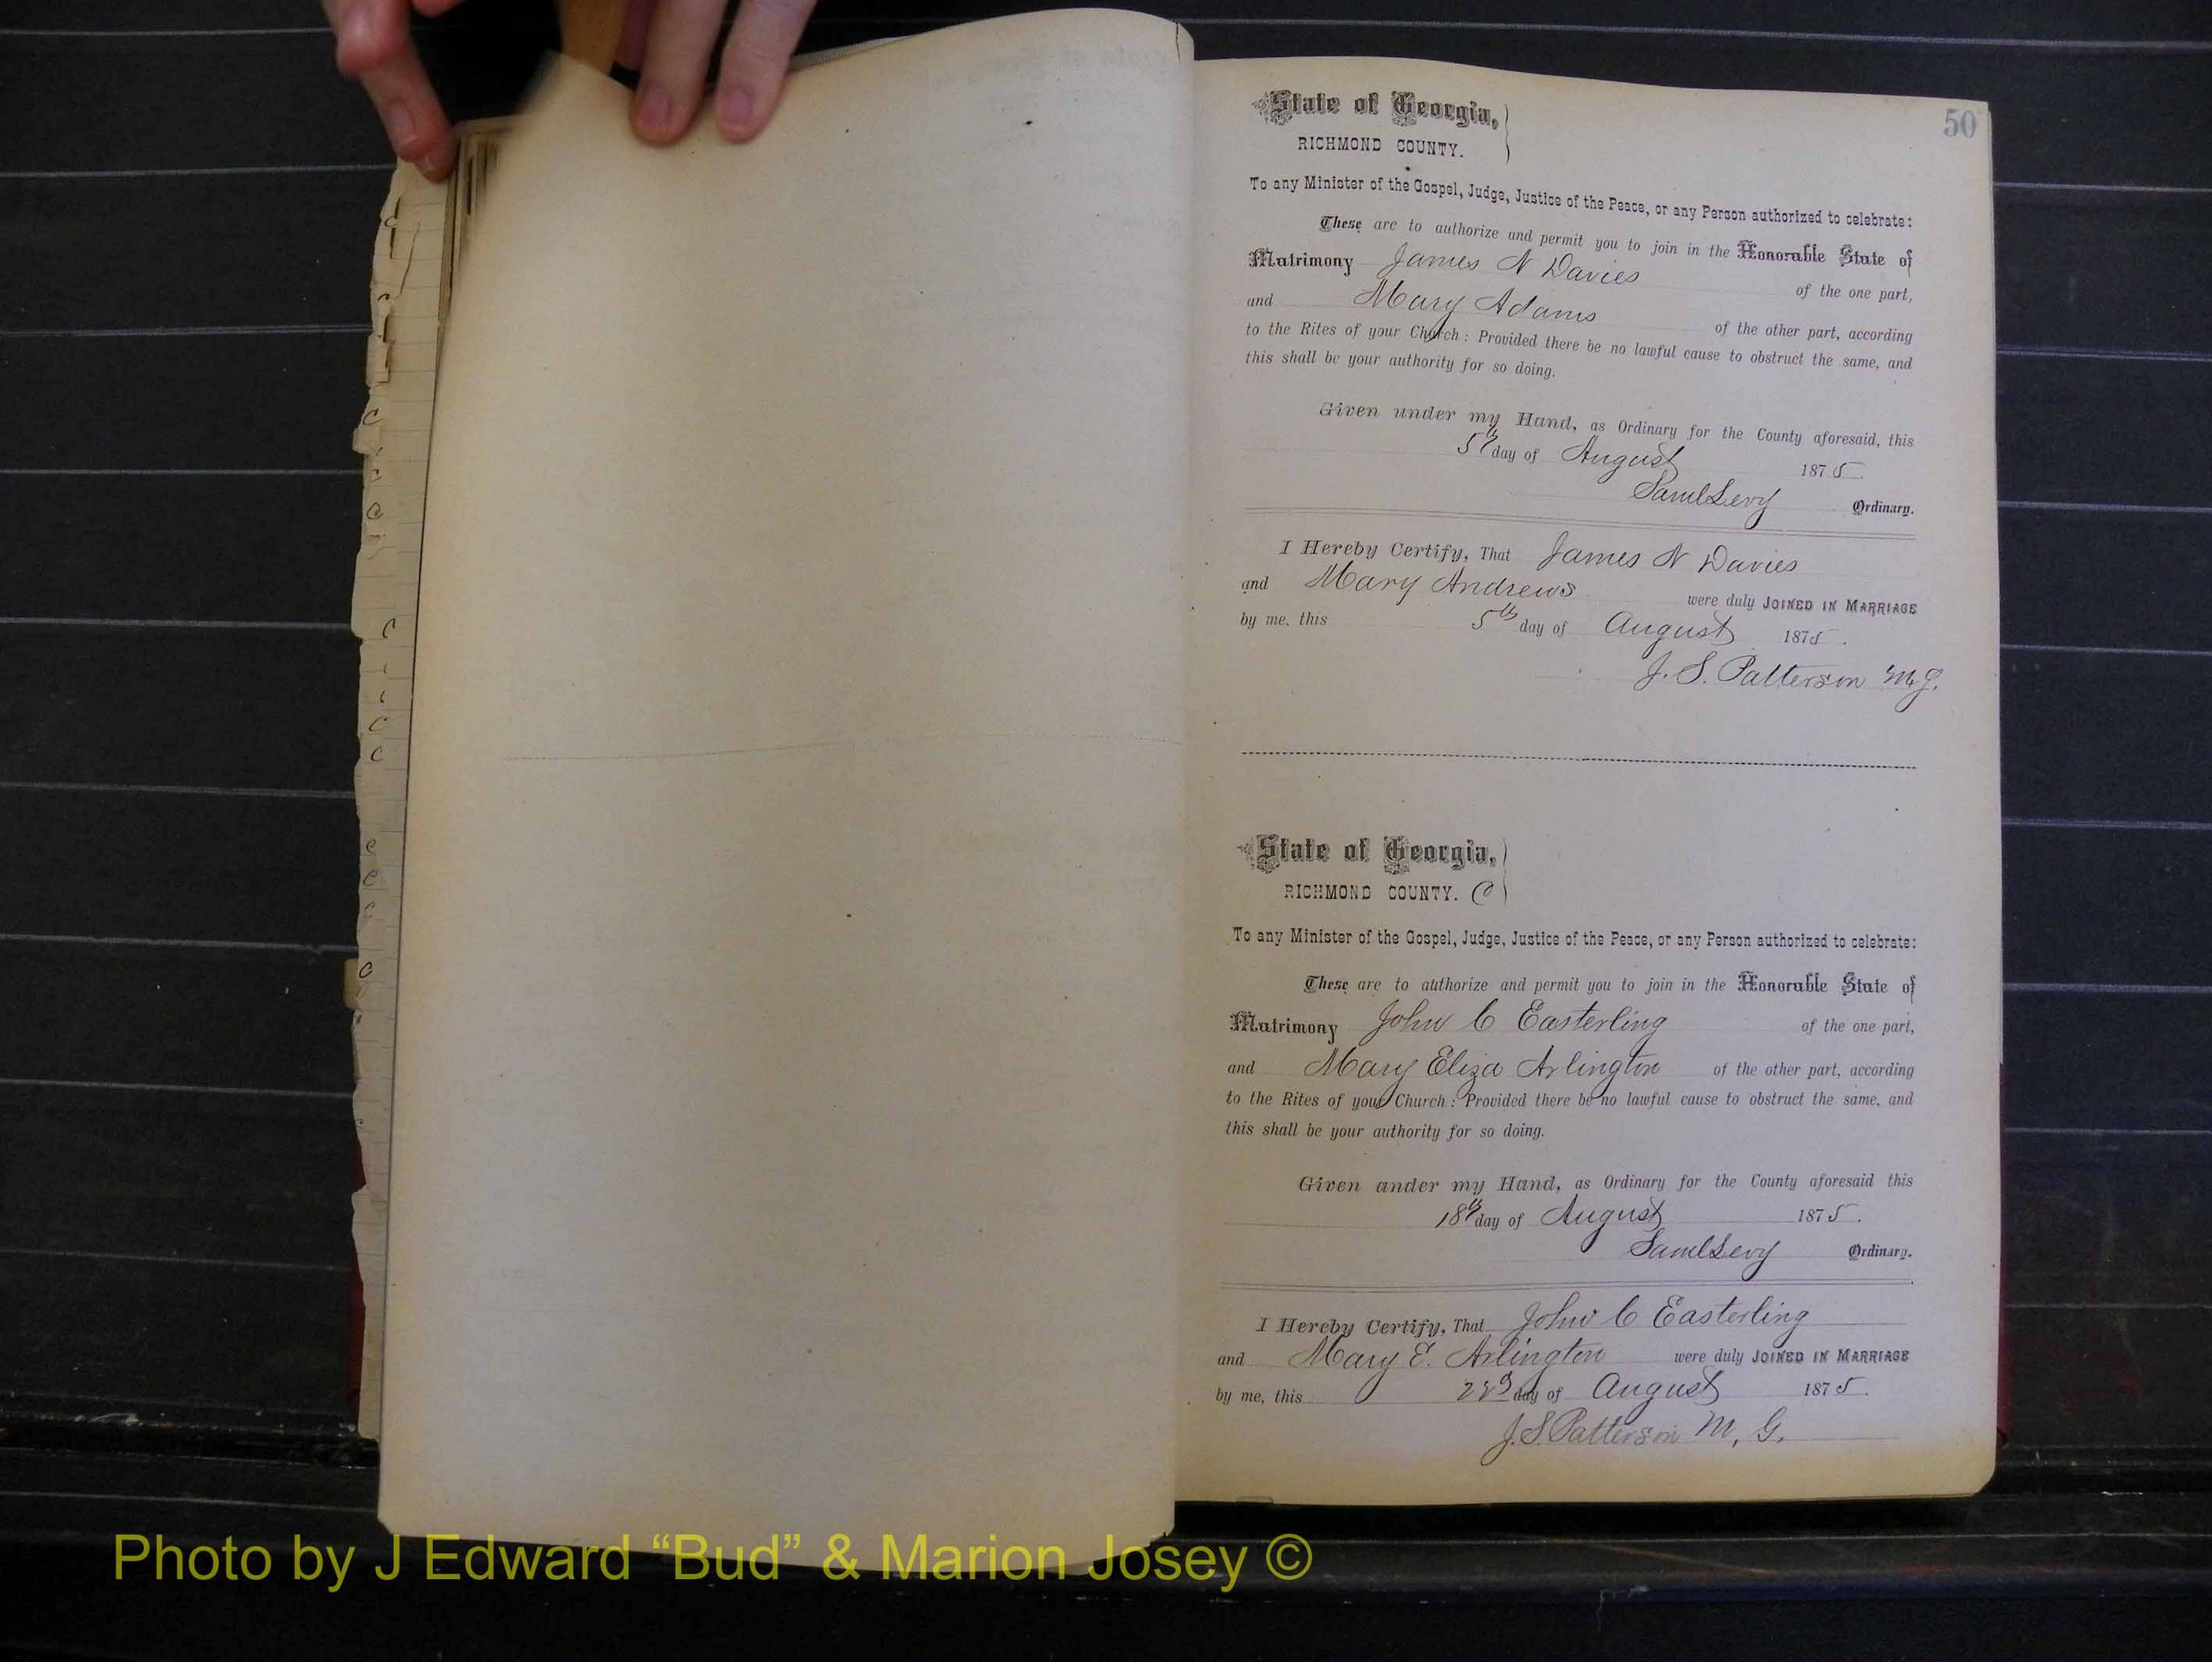 50
State of Georgia,
RICHMOND COUNTY.
To any Minister of the Gospel, Judge, Justice of the Peace, or any Person authorized to celebrate:
These are to authorize and permit you to join in the Honorable State of
Matrimony James N Davies of the one part,
and Mary Adams of the other part, according
to the Rites of your Church : Provided there be no lawful cause to obstruct the same, and
this shall be your authority for so doing.
Given under my Hand, as Ordinary for the County aforesaid, this
5th day of August 1875
Saml Levy Ordinary.
I Hereby Certify, That James N Davies
and Mary Andrews were duly JOINED IN MARRIAGE
by me, this 5th day of August 1875.
J. S. Patterson M G.
State of Georgia,
RICHMOND COUNTY. C
To any Minister of the Gospel, Judge, Justice of the Peace, or any Person authorized to celebrate:
These are to authorize and permit you to join in the Honorable State of
Matrimony John C Easterling of the one part,
and Mary Eliza Arlington of the other part, according
to the Rites of your Church : Provided there be no lawful cause to obstruct the same, and
this shall be your authority for so doing.
Given under my Hand, as Ordinary for the County aforesaid this
18th day of August 1875.
Saml Levy Ordinary.
I Hereby Certify, That John C Easterling
and Mary E. Arlington were duly JOINED IN MARRIAGE
by me, this day of August 1875.
J. S. Patterson M, G.
Photo by J Edward “Bud” & Marion Josey ©